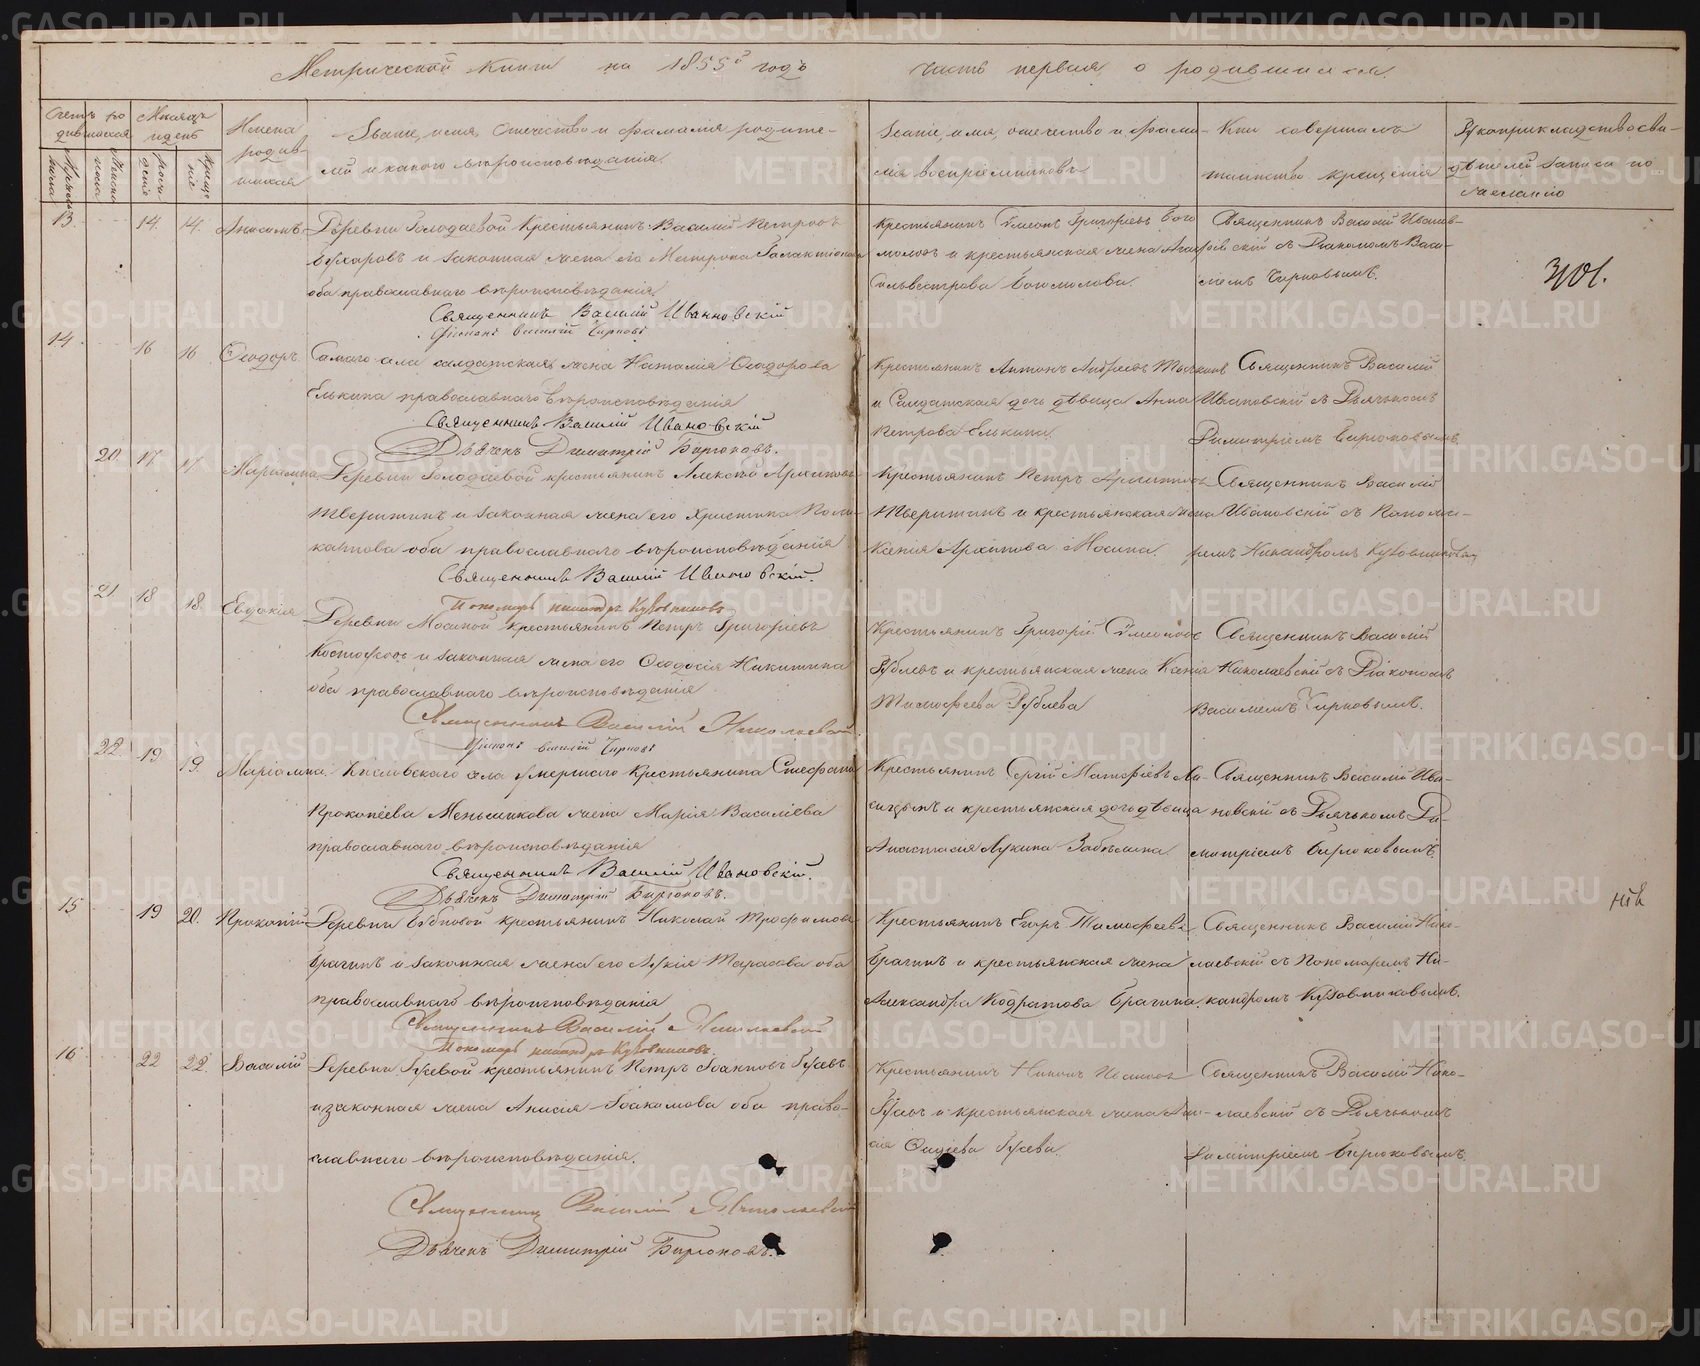 Метрической книги на 1855й годъ
часть первая о родившихся.
Счетъ ро
дившихся
Мѣсяцъ
и день
Имена
родив
шихся
Званіе, имя, отчество и фамилія родите-
лей и какого вѣроисповѣданія.
Званіе, имя, отчество и фами-
лія воспріемниковъ
Кто совершалъ
таинство крещенія
Рукоприкладство сви-
дѣтелей записи по
желанію
13. 14. 14. Анисимъ
Деревни Голодаевой Крестьянинъ Василій Петровъ
и законная жена его Матрона Галактіонова
оба православнаго вѣроисповѣданія.
Священникъ Василій Ивановскій
Діаконъ Василій Чирковъ
Крестьянинъ Симеонъ Григорьевъ Бого
моловъ и крестьянская жена
Сильвестрова Богомолова.
Священникъ Василій Иванов-
скій съ Діакономъ Васи-
ліемъ Чирковымъ.
301.
14 16 16 Ѳеодоръ
Самаго села солдатская жена Наталія Ѳеодорова
Елькина православнаго вѣроисповѣданія
Священникъ Василій Ивановскій
Дьячекъ Димитрій Бирюковъ.
Крестьянинъ Антонъ Андреевъ
и Солдатская дочь дѣвица Анна
Петрова Елькина.
Священникъ Василій
Ивановскій съ Дьячкомъ
Димитріемъ Бирюковымъ.
20. 17 17 Маріамна
Деревни Голодаевой крестьянинъ Алексѣй Архиповъ
Тверитинъ и законная жена его Христина Поли-
карпова оба православнаго вѣроисповѣданія
Священникъ Василій Ивановскій.
Пономарь Никандръ Кузовниковъ
Крестьянинъ Петръ Архиповъ
Тверитинъ и крестьянская жена
Ксенія Архипова Мосина.
Священникъ Василій
Ивановскій съ Понома-
ремъ Никандромъ Кузовниковымъ
21 18 18. Евдокія
Деревни Мосиной крестьянинъ Петръ Григорьевъ
и законная жена его Ѳеодосія Никитина
оба православнаго вѣроисповѣданія
Священникъ Василій Николаевскій
Діаконъ Василій Чирковъ
Крестьянинъ Григорій Симеоновъ
Рублевъ и крестьянская жена Ксенія
Тимофеева Рублева
Священникъ Василій
Николаевскій съ Діакономъ
Василіемъ Чирковымъ.
22 19 19. Маріамна
Кисловскаго села умершаго Крестьянина Стефана
Прокопіева Меньшикова жена Марія Василіева
православнаго вѣроисповѣданія
Священникъ Василій Ивановскій.
Дьячекъ Димитрій Бирюковъ.
Крестьянинъ Сергій Матфіевъ
и крестьянская дочь дѣвица
Анастасія Лукина Забѣлина.
Священникъ Василій Ива-
новскій съ Дьячкомъ Ди-
митріемъ Бирюковымъ.
15 19 20. Прокопій
Деревни Бубновой крестьянинъ Николай Трофимовъ
Брагинъ и законная жена его Лукія Тарасова оба
православнаго вѣроисповѣданія
Священникъ Василій Николаевскій
Пономарь Никандръ Кузовниковъ.
Крестьянинъ Егоръ Тимофеевъ
Брагинъ и крестьянская жена
Александра Кодратова Брагина.
Священникъ Василій Нико-
лаевскій съ Пономаремъ Ни-
кандромъ Кузовниковымъ.
16 22 22 Василій
Деревни Гусевой крестьянинъ Петръ Іоанновъ Гусевъ
и законная жена Анисія Іоакимова оба право-
славнаго вѣроисповѣданія.
Священникъ Василій Николаевскій
Дьячекъ Димитрій Бирюковъ.
Крестьянинъ Никонъ Ивановъ
Гусевъ и крестьянская жена
Гусева.
Священникъ Василій Нико-
лаевскій съ Дьячкомъ
Димитріемъ Бирюковымъ.
METRIKI.GASO-URAL.RU